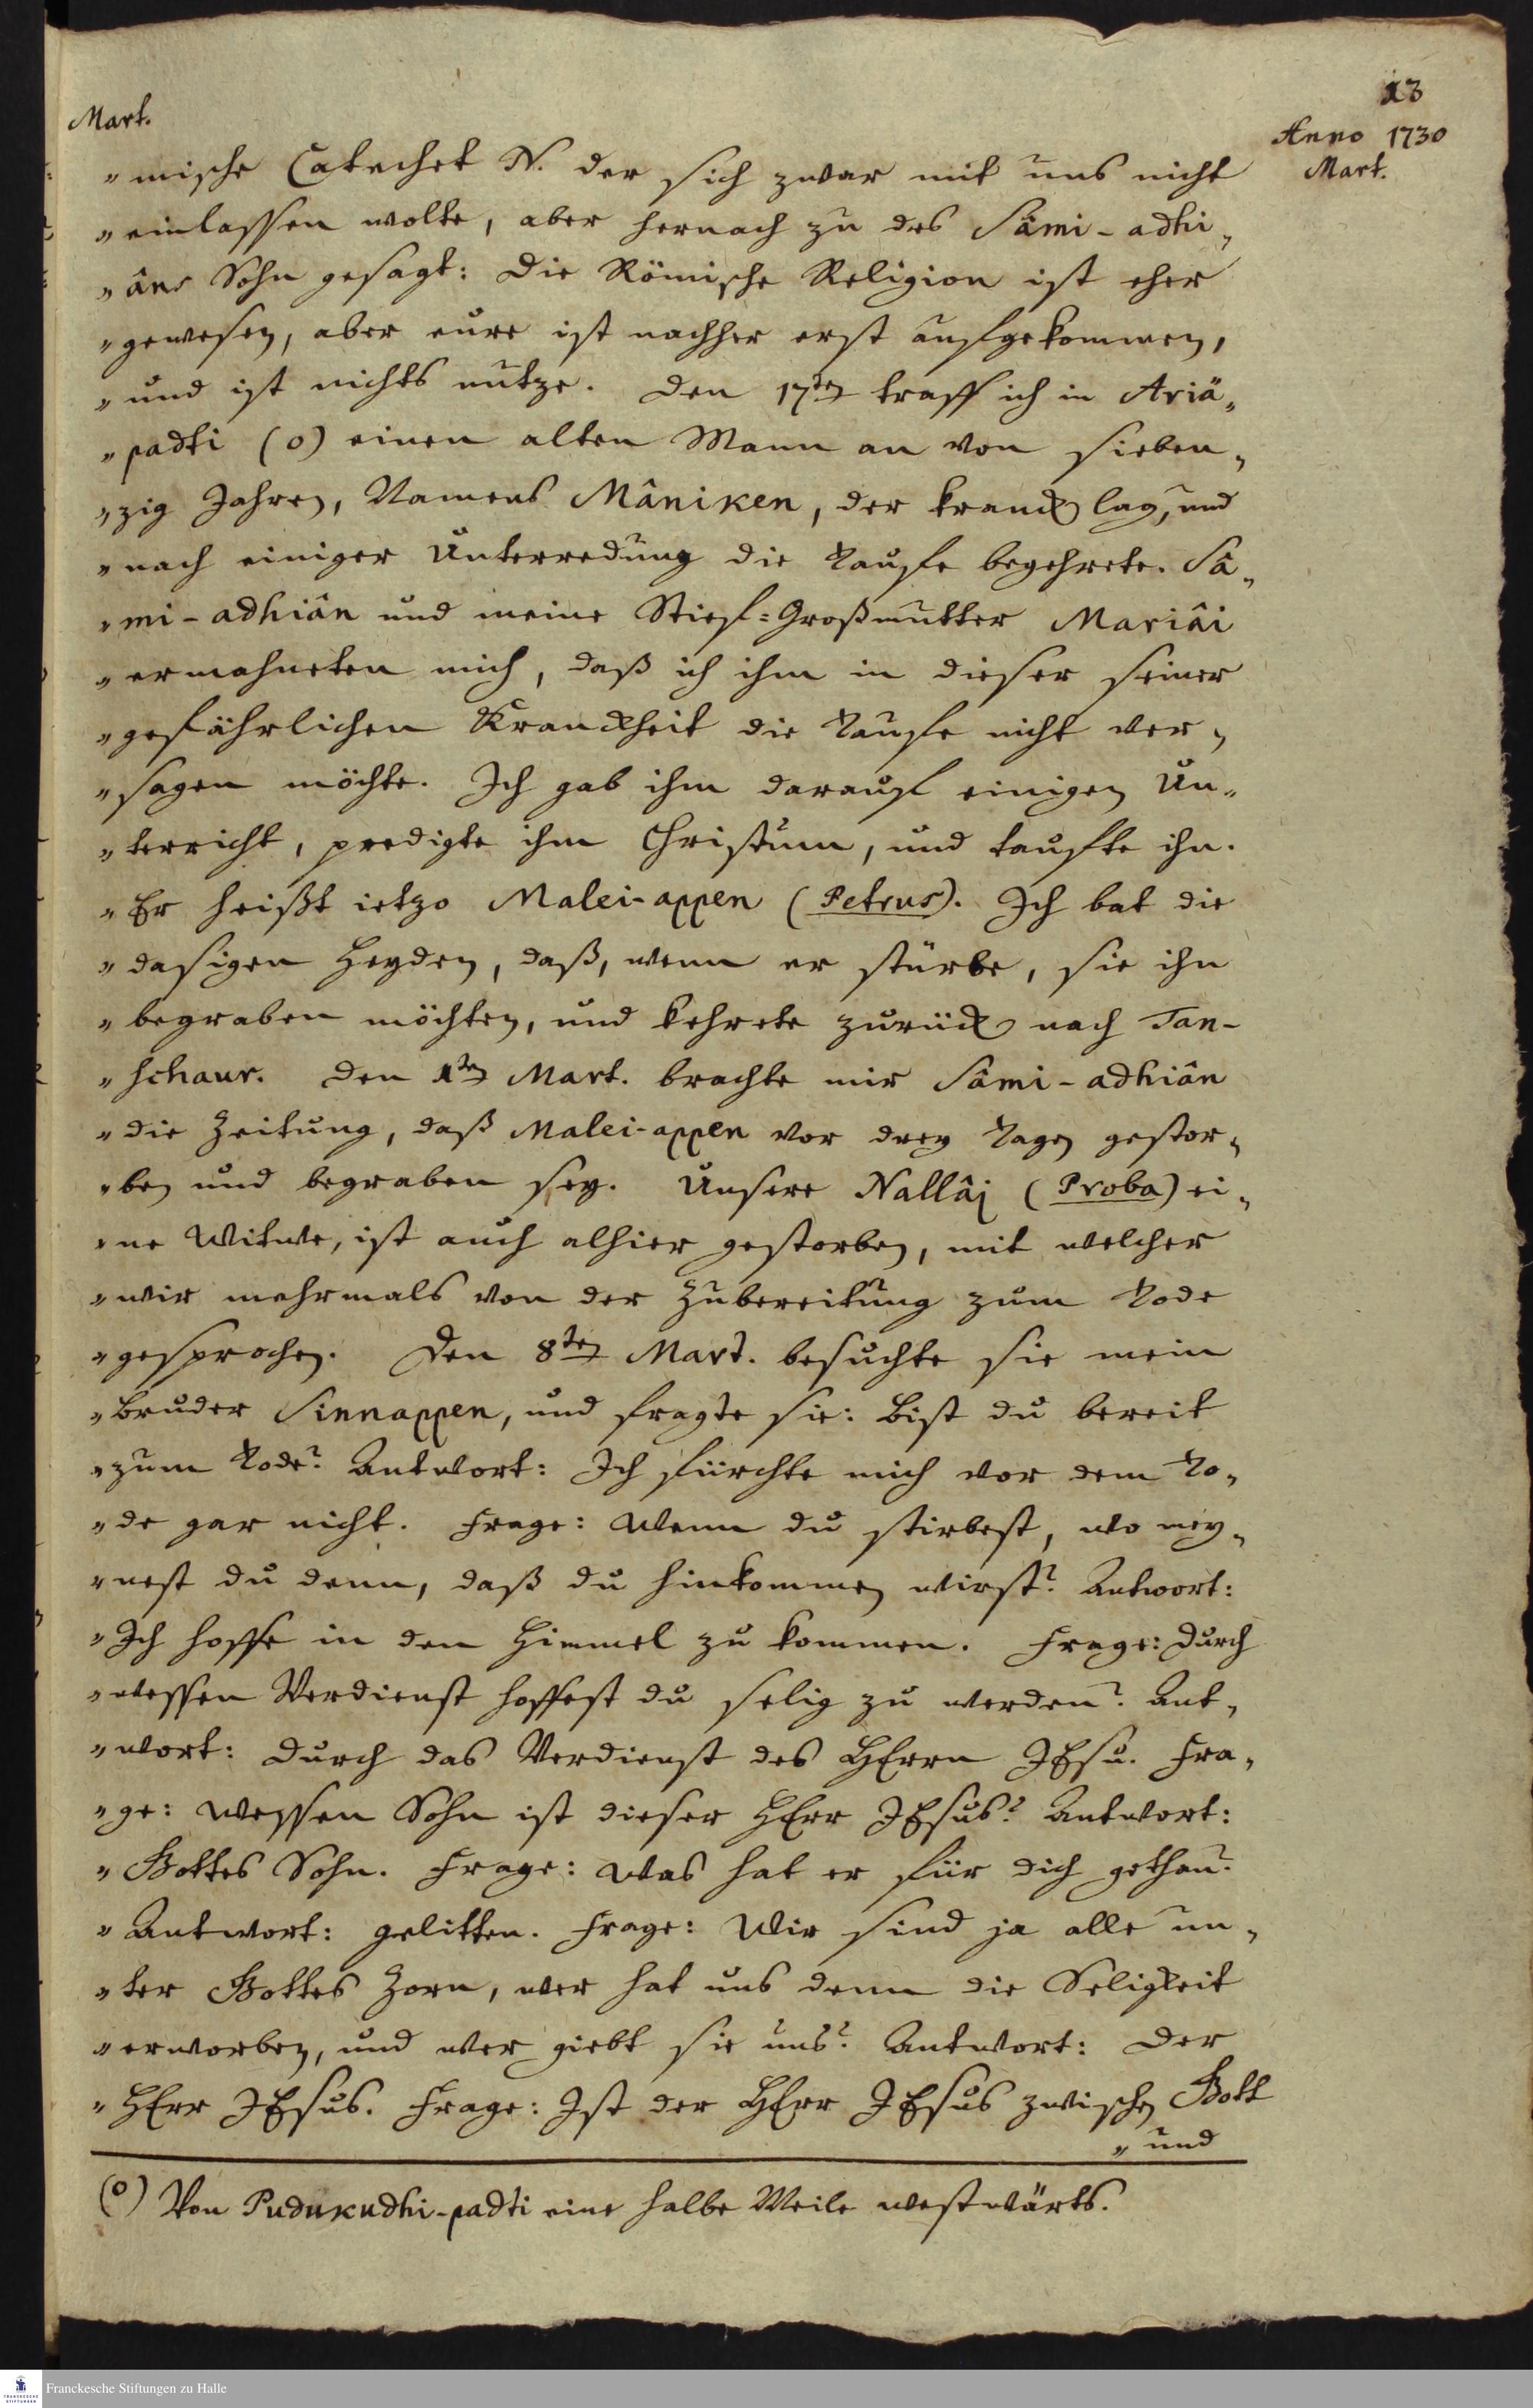 13
Mart.
Anno 1730
Mart.
„mische Catechet N. der sich zwar mit uns nicht
„einlassen wolte, aber hernach zu des Sâmi-adhi„
„âns Sohn gesagt: Die Römische Religion ist eher
„gewesen, aber eure ist nachher erst aufgekommen,
„und ist nichts nutze. Den 17ten traff ich in Ariä„
„padti (o) einen alten Mann an von sieben„
„zig Jahren, Namens Mâniken, der kranck lag, und
„nach einiger Unterredung die Taufe begehrete. Sâ„
„mi-adhiân und meine Stief-Großmutter Mariâi
„ermahneten mich, daß ich ihm in dieser seiner
„gefährlichen Kranckheit die Taufe nicht ver„
„sagen möchte. Ich gab ihm darauf einigen Un„
„terricht, predigte ihm Christum, und taufte ihn.
„Er heißt ietzo Malei-appen (Petrus). Ich bat die
„dasigen Heyden, daß, wenn er stürbe, sie ihn
„begraben möchten, und kehrete zurück nach Tan-
„schaur. Den 1ten Mart. brachte mir Sâmi-adhiân
„die Zeitung, daß Malei-appen vor drey Tagen gestor„
„ben und begraben sey. Unsere Nallâi (Proba) ei„
„ne Witwe, ist auch alhier gestorben, mit welcher
„wir mehrmals von der Zubereitung zum Tode
„gesprochen. Den 8ten Mart. besuchte sie mein
„Bruder Sinnappen, und fragte sie: Bist du bereit
„zum Tode? Antwort: Ich fürchte mich vor dem To„
„de gar nicht. Frage: Wenn du stirbest, wo mey„
„nest du denn, daß du hinkommen wirst? Antwort:
„Ich hoffe in den Himmel zu kommen. Frage: Durch
„wessen Verdienst hoffest du selig zu werden? Ant„
„wort: Durch das Verdienst des HErrn JEsu. Fra„
„ge: Wessen Sohn ist dieser HErr JEsus? Antwort:
„Gottes Sohn. Frage: Was hat er für dich gethan?
„Antwort: gelitten. Frage: Wir sind ja alle un„
„ter Gottes Zorn, wer hat uns denn die Seligkeit
„erworben, und wer giebt sie uns? Antwort: Der
„HErr JEsus. Frage: Ist der HErr JEsus zwischen Gott
„und
(o) Von Pudukudhi-padti eine halbe Meile westwärts.
FRANCKESCHE STIFTUNGEN
Franckesche Stiftungen zu Halle